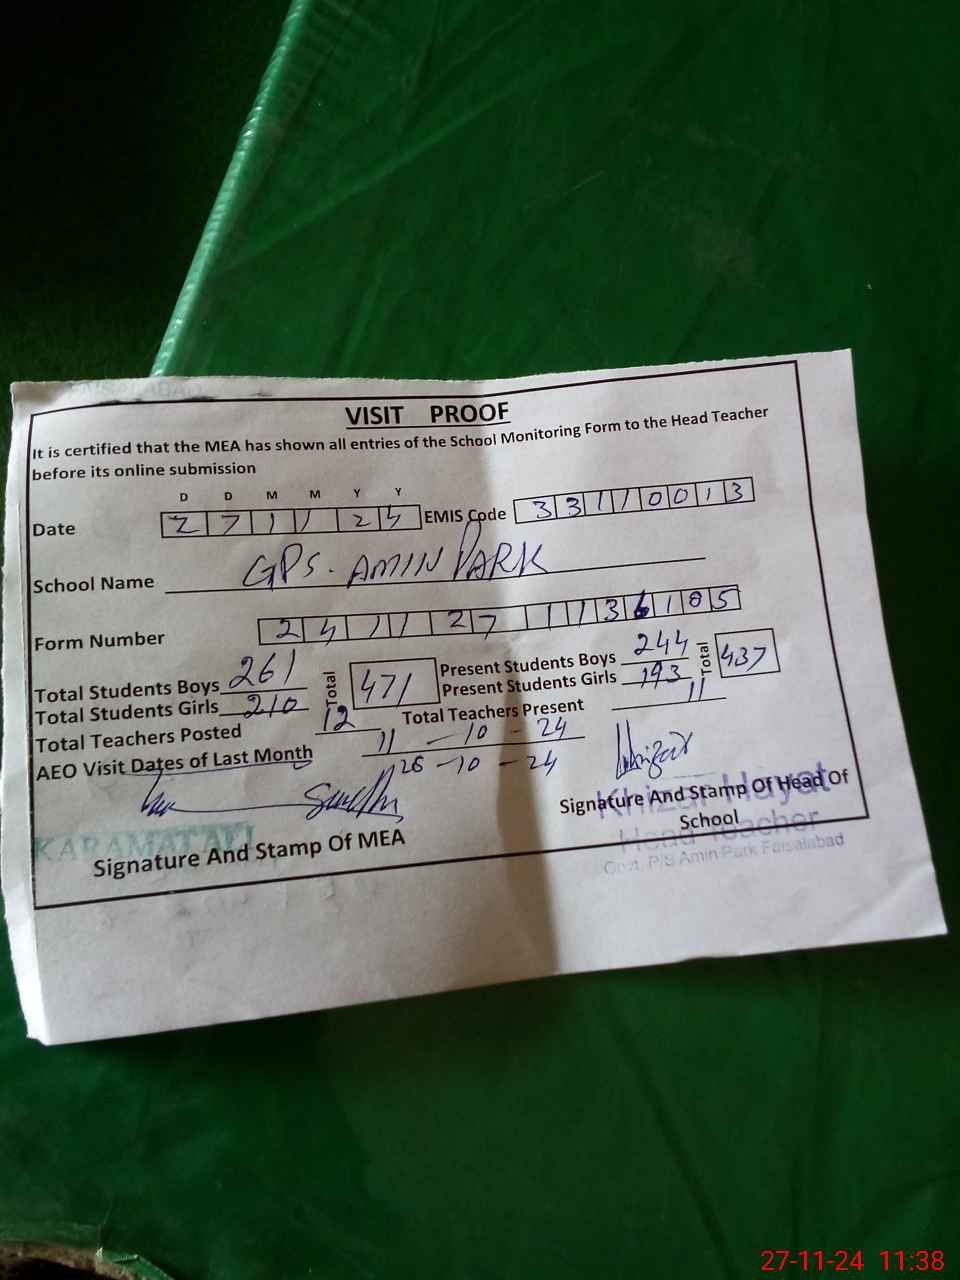 VISIT PROOF
It is certified that the MEA has shown all entries of the School Monitoring Form to the Head Teacher
before its online submission
D D M M Y Y
Date 27 11 24 EMIS Code 33110013
School Name GPS. AMIN PARK
Form Number 24112711136105
Total Students Boys 261 Total 471 Present Students Boys 244 Total 437
Total Students Girls 210 Present Students Girls 193
Total Teachers Posted 12 Total Teachers Present 11
AEO Visit Dates of Last Month 11 - 10 - 24
26 - 10 - 24
KARAMAT ALI
Signature And Stamp Of MEA
Signature And Stamp Of Head Of
School
Khizar Hayat
Head Teacher
Govt. P/S Amin Park Faisalabad
27-11-24 11:38